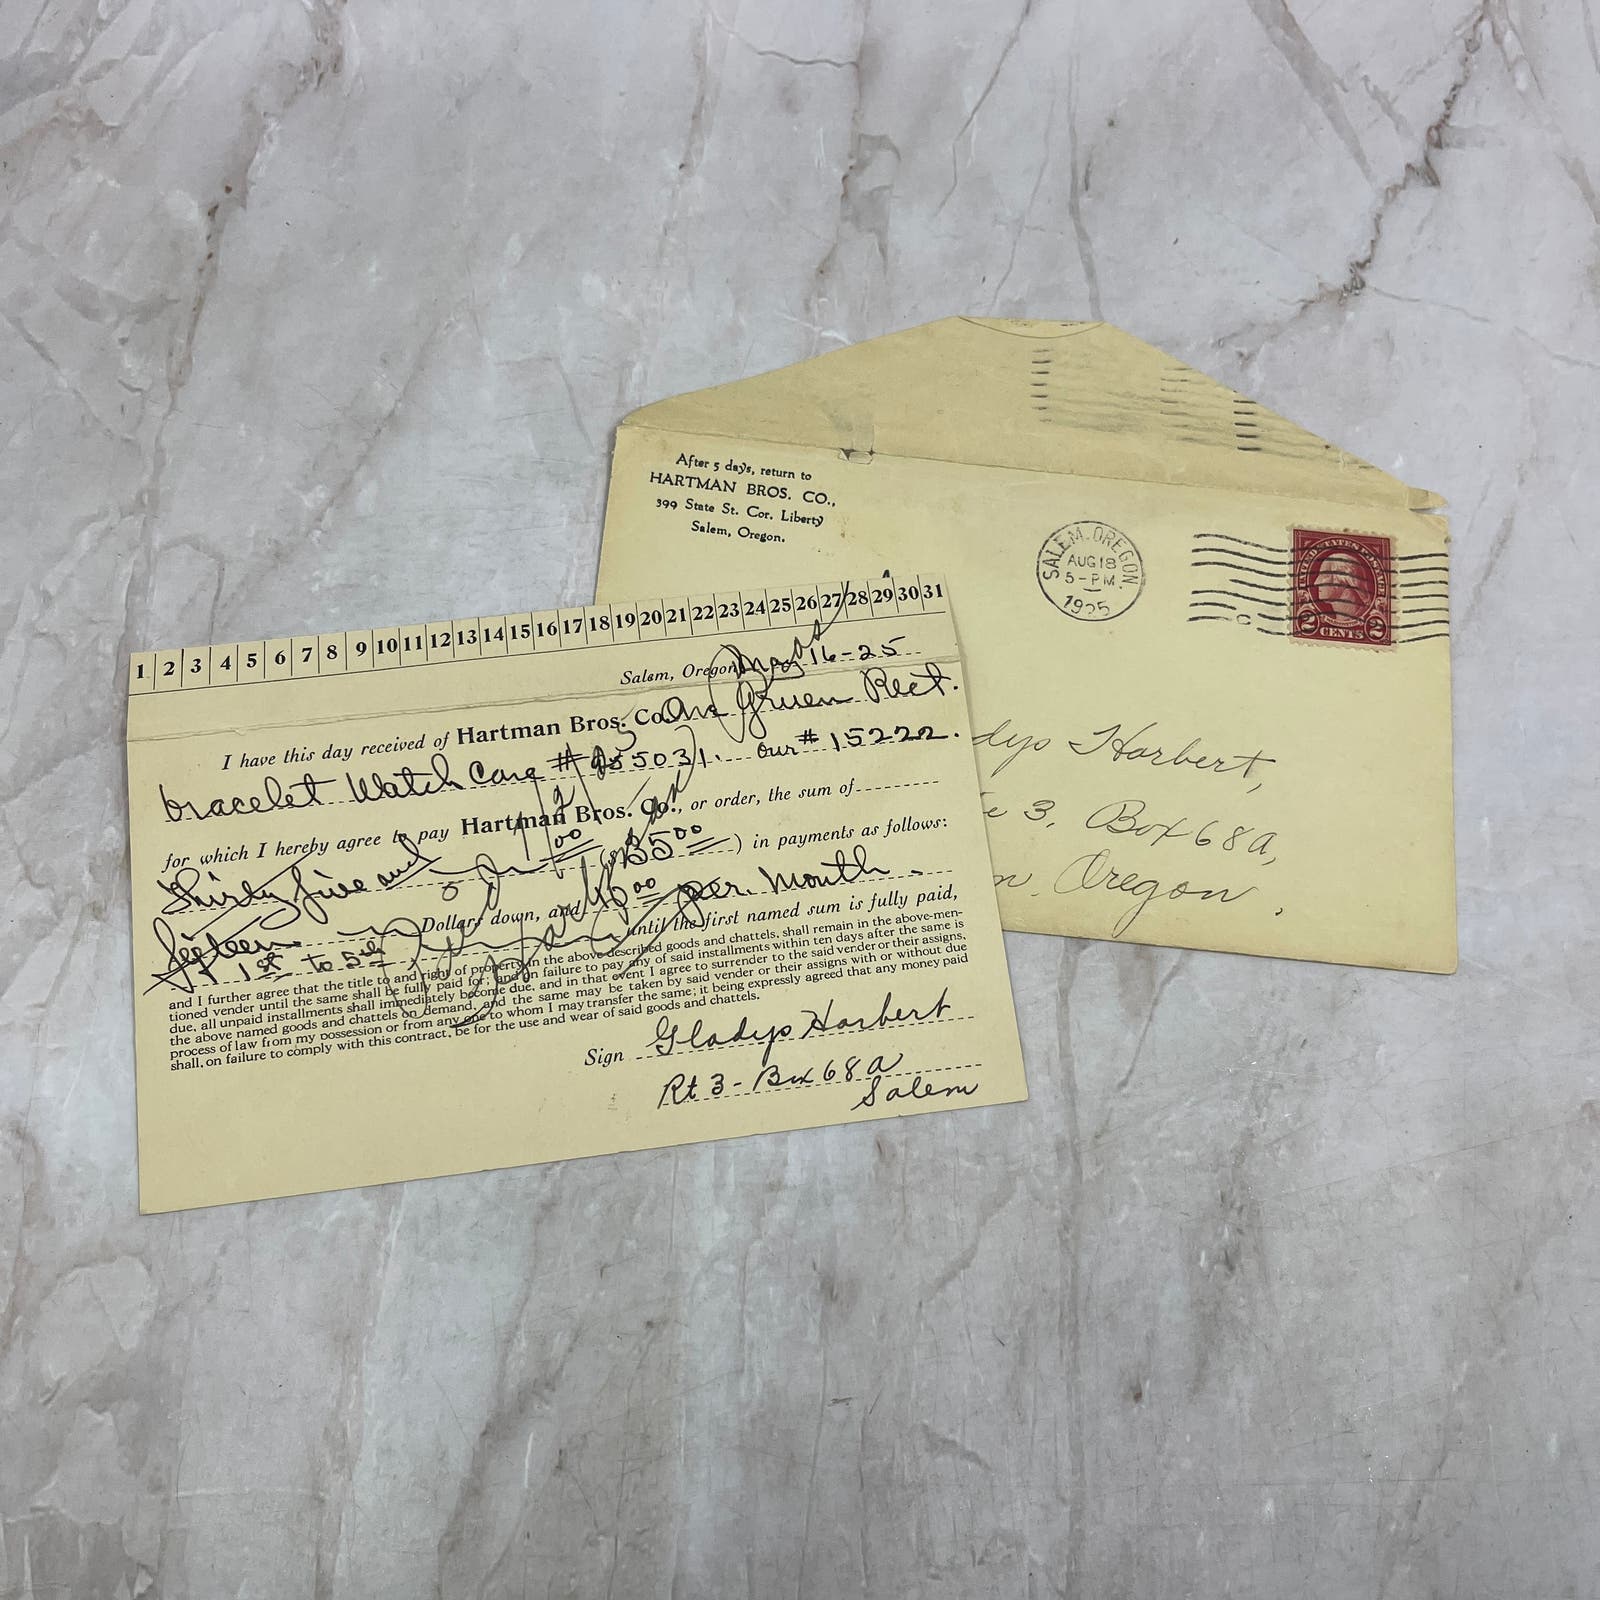 After 5 days, return to
HARTMAN BROS. CO.,
399 State St. Cor. Liberty
Salem, Oregon.
SALEM. OREGON.
AUG 18
5-PM
1925
UNITED STATES POSTAGE
2 CENTS 2
dys Harbert,
e 3, Box 68a,
m, Oregon.
1 2 3 4 5 6 7 8 9 10 11 12 13 14 15 16 17 18 19 20 21 22 23 24 25 26 27 28 29 30 31
Salem, Oregon May 16-25
I have this day received of Hartman Bros. Co. One Gruen Rect.
bracelet Watch Case # 5031. our # 15222.
for which I hereby agree to pay Hartman Bros. Co., or order, the sum of
Thirty five and 00 ($35 00) in payments as follows:
fifteen Dollars down, and per. Month
1st to 5th until the first named sum is fully paid,
and I further agree that the title to and right of property in the above described goods and chattels, shall remain in the above-men-
tioned vender until the same shall be fully paid for; and on failure to pay any of said installments within ten days after the same is
due, all unpaid installments shall immediately become due, and in that event I agree to surrender to the said vender or their assigns,
the above named goods and chattels on demand, and the same may be taken by said vender or their assigns with or without due
process of law from my possession or from any one to whom I may transfer the same; it being expressly agreed that any money paid
shall, on failure to comply with this contract, be for the use and wear of said goods and chattels.
Sign Gladys Harbert
Rt 3 - Box 68 a
Salem